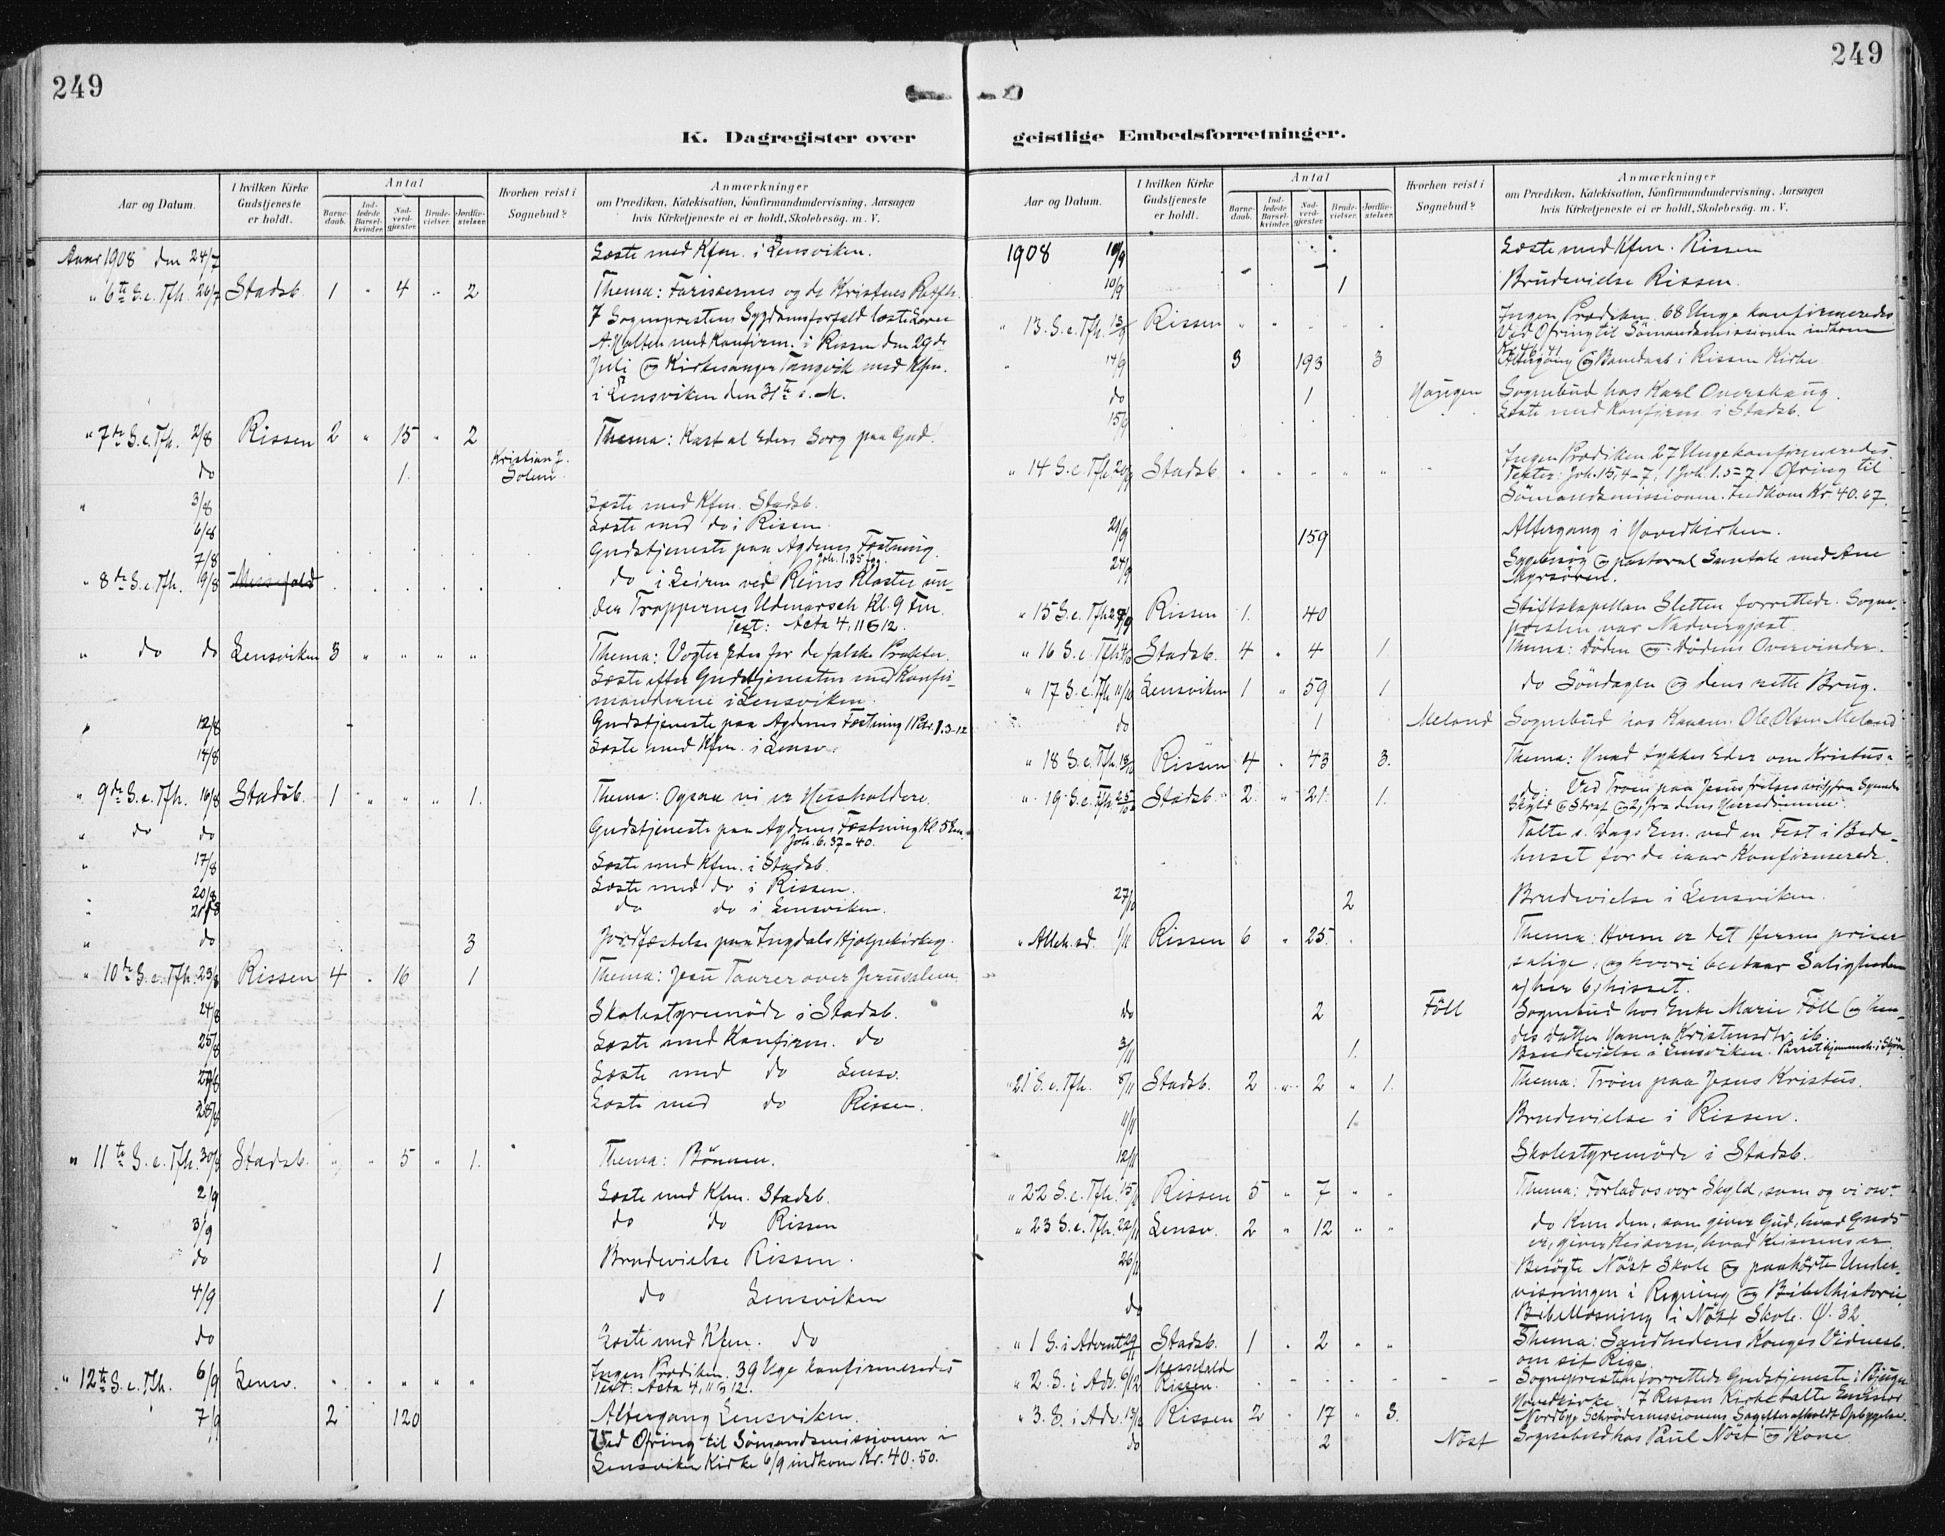 249
249
K. Dagregister over
geistlige Embedsforretninger.
Aar og Datum.
I hvilken Kirke Gudstjeneste er holdt.
Antal
Barnedaab.
Indledede Barselkvinder.
Nadverdgjæster.
Brudevielser.
Jordfæstelser.
Hvorhen reist i Sognebud?
Anmærkninger
om Prædiken, Katekisation, Konfirmandundervisning, Aarsagen
hvis Kirketjeneste ei er holdt, Skolebesøg. m. V.
Aar 1908 den 24/7 Læste med Kfm. i Lensviken.
" 6te S. e. Tfh. 26/7 Stadsb. 1 " 4 " 2 Thema: Farisæernes og de Kristnes Retfh.
I Sogneprestens Sygdomsforfald læste Lærer
A. Halten med Konfirm. i Rissen den 29de
Juli og Kirkesanger Tangvik med Kfm.
i Lensviken den 31te s. M.
" 7de S. e. Tfh. 2/8 Rissen 2 " 15 " 2 Thema: Kast al Eders Sorg paa Gud.
do 1. Kristian J. Solem.
" 3/8 Læste med Kfm. Stadsb.
6/8 Læste med do i Rissen.
7/8 Gudstjeneste paa Agdenes Fæstning.
Joh. 1.35 fgg.
" 8de S. e. Tfh. 9/8 Messefald do i Leiren ved Reins Kloster un-
der Troppernes Udmarsch Kl. 9 Fm.
Text: Acta 4, 11 & 12.
" do do Lensviken 3 " " " " Thema: Vogter Eder for de falske Profeter.
Læste efter Gudstjenesten med Konfir-
manderne i Lensviken.
" 12/8 Gudstjeneste paa Agdenes Fæstning 1 Petr. 1.3-12
14/8 Læste med Kfm. i Lensv.
" 9de S. e. Tfh. 16/8 Stadsb. 1 " " " 1. Thema: Ogsaa vi er Husholdere.
" do do Gudstjeneste paa Agdenes Fæstning Kl. 5 Em.
Joh. 6. 37-40.
" 17/8 Læste med Kfm. i Stadsb.
20/8 Læste med do i Rissen.
" 21/8 do do i Lensviken.
" do 3 Jordfæstelse paa Ingdals Hjælpekirkeg.
" 10de S. e. Tfh. 23/8 Rissen 4 " 16 1 Thema: Jesu Taarer over Jerusalem.
24/8 Skolestyremøde i Stadsb.
25/8 Læste med Konfirm. do
Læste med do Lensv.
Læste med do Rissen.
" 11te S. e. Tfh. 30/8 Stadsb. " " 5 " 1. Thema: Bønnen.
2/9 Læste med Kfm. Stadsb.
3/9 do do Rissen
do 1 Brudevielse Rissen.
4/9 1 do Lensviken
do Læste med Kfm. do
" 12te S. e. Tfh. 6/9 Lensv. " " " " " Ingen Prædiken. 39 Unge konfirmeredes
Text: Acta 4, 11 & 12.
7/9 2 120 Altergang Lensviken.
Ved Ofring til Sömandsmissionen i
Lensviken Kirke 6/9 indkom Kr. 40.50.
Aar og Datum.
I hvilken Kirke Gudstjeneste er holdt.
Antal
Barnedaab.
Indledede Barselkvinder.
Nadverdgjæster.
Brudevielser.
Jordfæstelser.
Hvorhen reist i Sognebud?
Anmærkninger
om Prædiken, Katekisation, Konfirmandundervisning, Aarsagen
hvis Kirketjeneste ei er holdt, Skolebesøg. m. V.
1908 10/9 Læste med Kfm. Rissen
10/9 1 Brudevielse Rissen.
" 13. S. e. Tfh. 13/9 Rissen " " " " " Ingen Prædiken. 68 Unge konfirmeredes
Ved Ofring til Sömandsmissionen indkom
" 14/9 3 193 3 Altergang og Barnedaab i Rissen Kirke
do 1 Haugen Sognebud hos Karl Overskaug.
15/9 Læste med Konfirm. i Stadsb.
" 14 S. e. Tfh. 20/9 Stadsb. " " " " " Ingen Prædiken 27 Unge konfirmeredes.
Texter: Joh. 15, 4-7, 1 Joh. 1. 5-7 Ofring til
Sömandsmissionen. Indkom Kr 40.67.
21/9 159 Altergang i Hovedkirken.
24/9 Sygebesøg og pastoral Samtale med Ane
Myrsøren.
" 15 S. e. Tfh. 27/9 Rissen 1. 40 Stiftskapellan Sletten forrettede. Sogne-
presten var Nadvergjæst.
" 16 S. e. Tfh. 4/10 Stadsb. 4 " 4 1. Thema: Døden og Dødens Overvinder.
" 17 S. e. Tfh. 11/10 Lensviken 1 " 59 1 do Søndagen og dens rette Brug.
do 1 Meland Sognebud hos Kaarm. Ole Olsen Meland
" 18 S. e. Tfh. 18/10 Rissen 4 " 43 3. Thema: Hvad tykkes Eder om Kristus.
" 19 S. e. Tfh. 25/10 Stadsb. 2. " 21. 1. do: Ved Troen paa Jesus frelses vi 1) fra Syndens
Skyld & Straf og 2) fra dens Herredömme.
Talte s. Dags Em. ved en Fest i Bede-
huset for de iaar Konfirmerede.
27/10 2 Brudevielse i Lensviken.
" Alleh. sd. 1/11 Rissen 6 " 25. Thema: Hvem er det Herren priser
salige, og hvori bestaar Saligheden
a) her b) hisset.
do 2 Föll Sognebud hos Enke Marie Föll og hen-
des datter Hanna Kristensdtr ib.
3/11 1. Brudevielse i Lensviken.
" 21 S. e. Tfh. 8/11 Stadsb. 2 " 2 " 1. Thema: Troen paa Jesus Kristus.
11/11 1. Brudevielse i Rissen.
12/11 Skolestyremøde i Stadsb.
" 22 S. e. Tfh. 15/11 Rissen 5 " 7 " " Thema: Forlad os vor Skyld, som og vi osv.
" 23 S. e. Tfh. 22/11 Lensv. 2 " 12 " " do Kun den, som giver Gud, hvad Guds
er, giver Keiseren, hvad Keiserens er.
26/11 Besøgte Nöst Skole og paahørte Under-
visningen i Regning og Bibelhistorie
do Bibellæsning i Nöst Skole. Ø. 32
" 1 S. i Advent 29/11 Stadsb. 1 " 2 " " Thema: Sandhedens Konges Vidnesb.
om sit Rige.
" 2. S. i Adv. 6/12 Messefald Rissen. Sognepresten forrettede Gudstjeneste i Bjugn
Hovedkirke. I Rissen Kirke talte Emissær
" 3. S. i Adv. 13/12 Rissen 2 " 17 " 3. Nordbye Schrödermissionens Opbyggelse.
do 2 Nöst Sognebud hos Paul Nöst og Kone